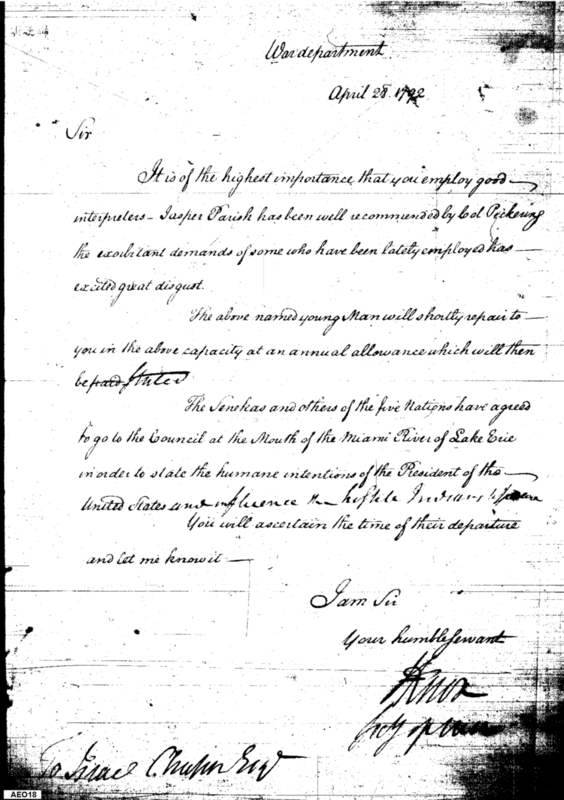 War department
April 28. 1792
Sir
It is of the highest importance that you employ good
interpreters – Jasper Parish has been well recommended by Col Pickering
the exorbitant demands of some who have been lately employed has
excited great disgust.
The above named young Man will shortly repair to
you in the above capacity at an annual allowance which will then
be paid stated
The Senekas and others of the five Nations have agreed
to go to the Council at the Mouth of the Miami River of Lake Erie
in order to state the humane intentions of the President of the
United States and influence the hostile Indians to peace
You will ascertain the time of their departure
and let me know it –
I am Sir
Your humble servant
H Knox
Secy of war
To Israel Chapin Esqr
AEO18